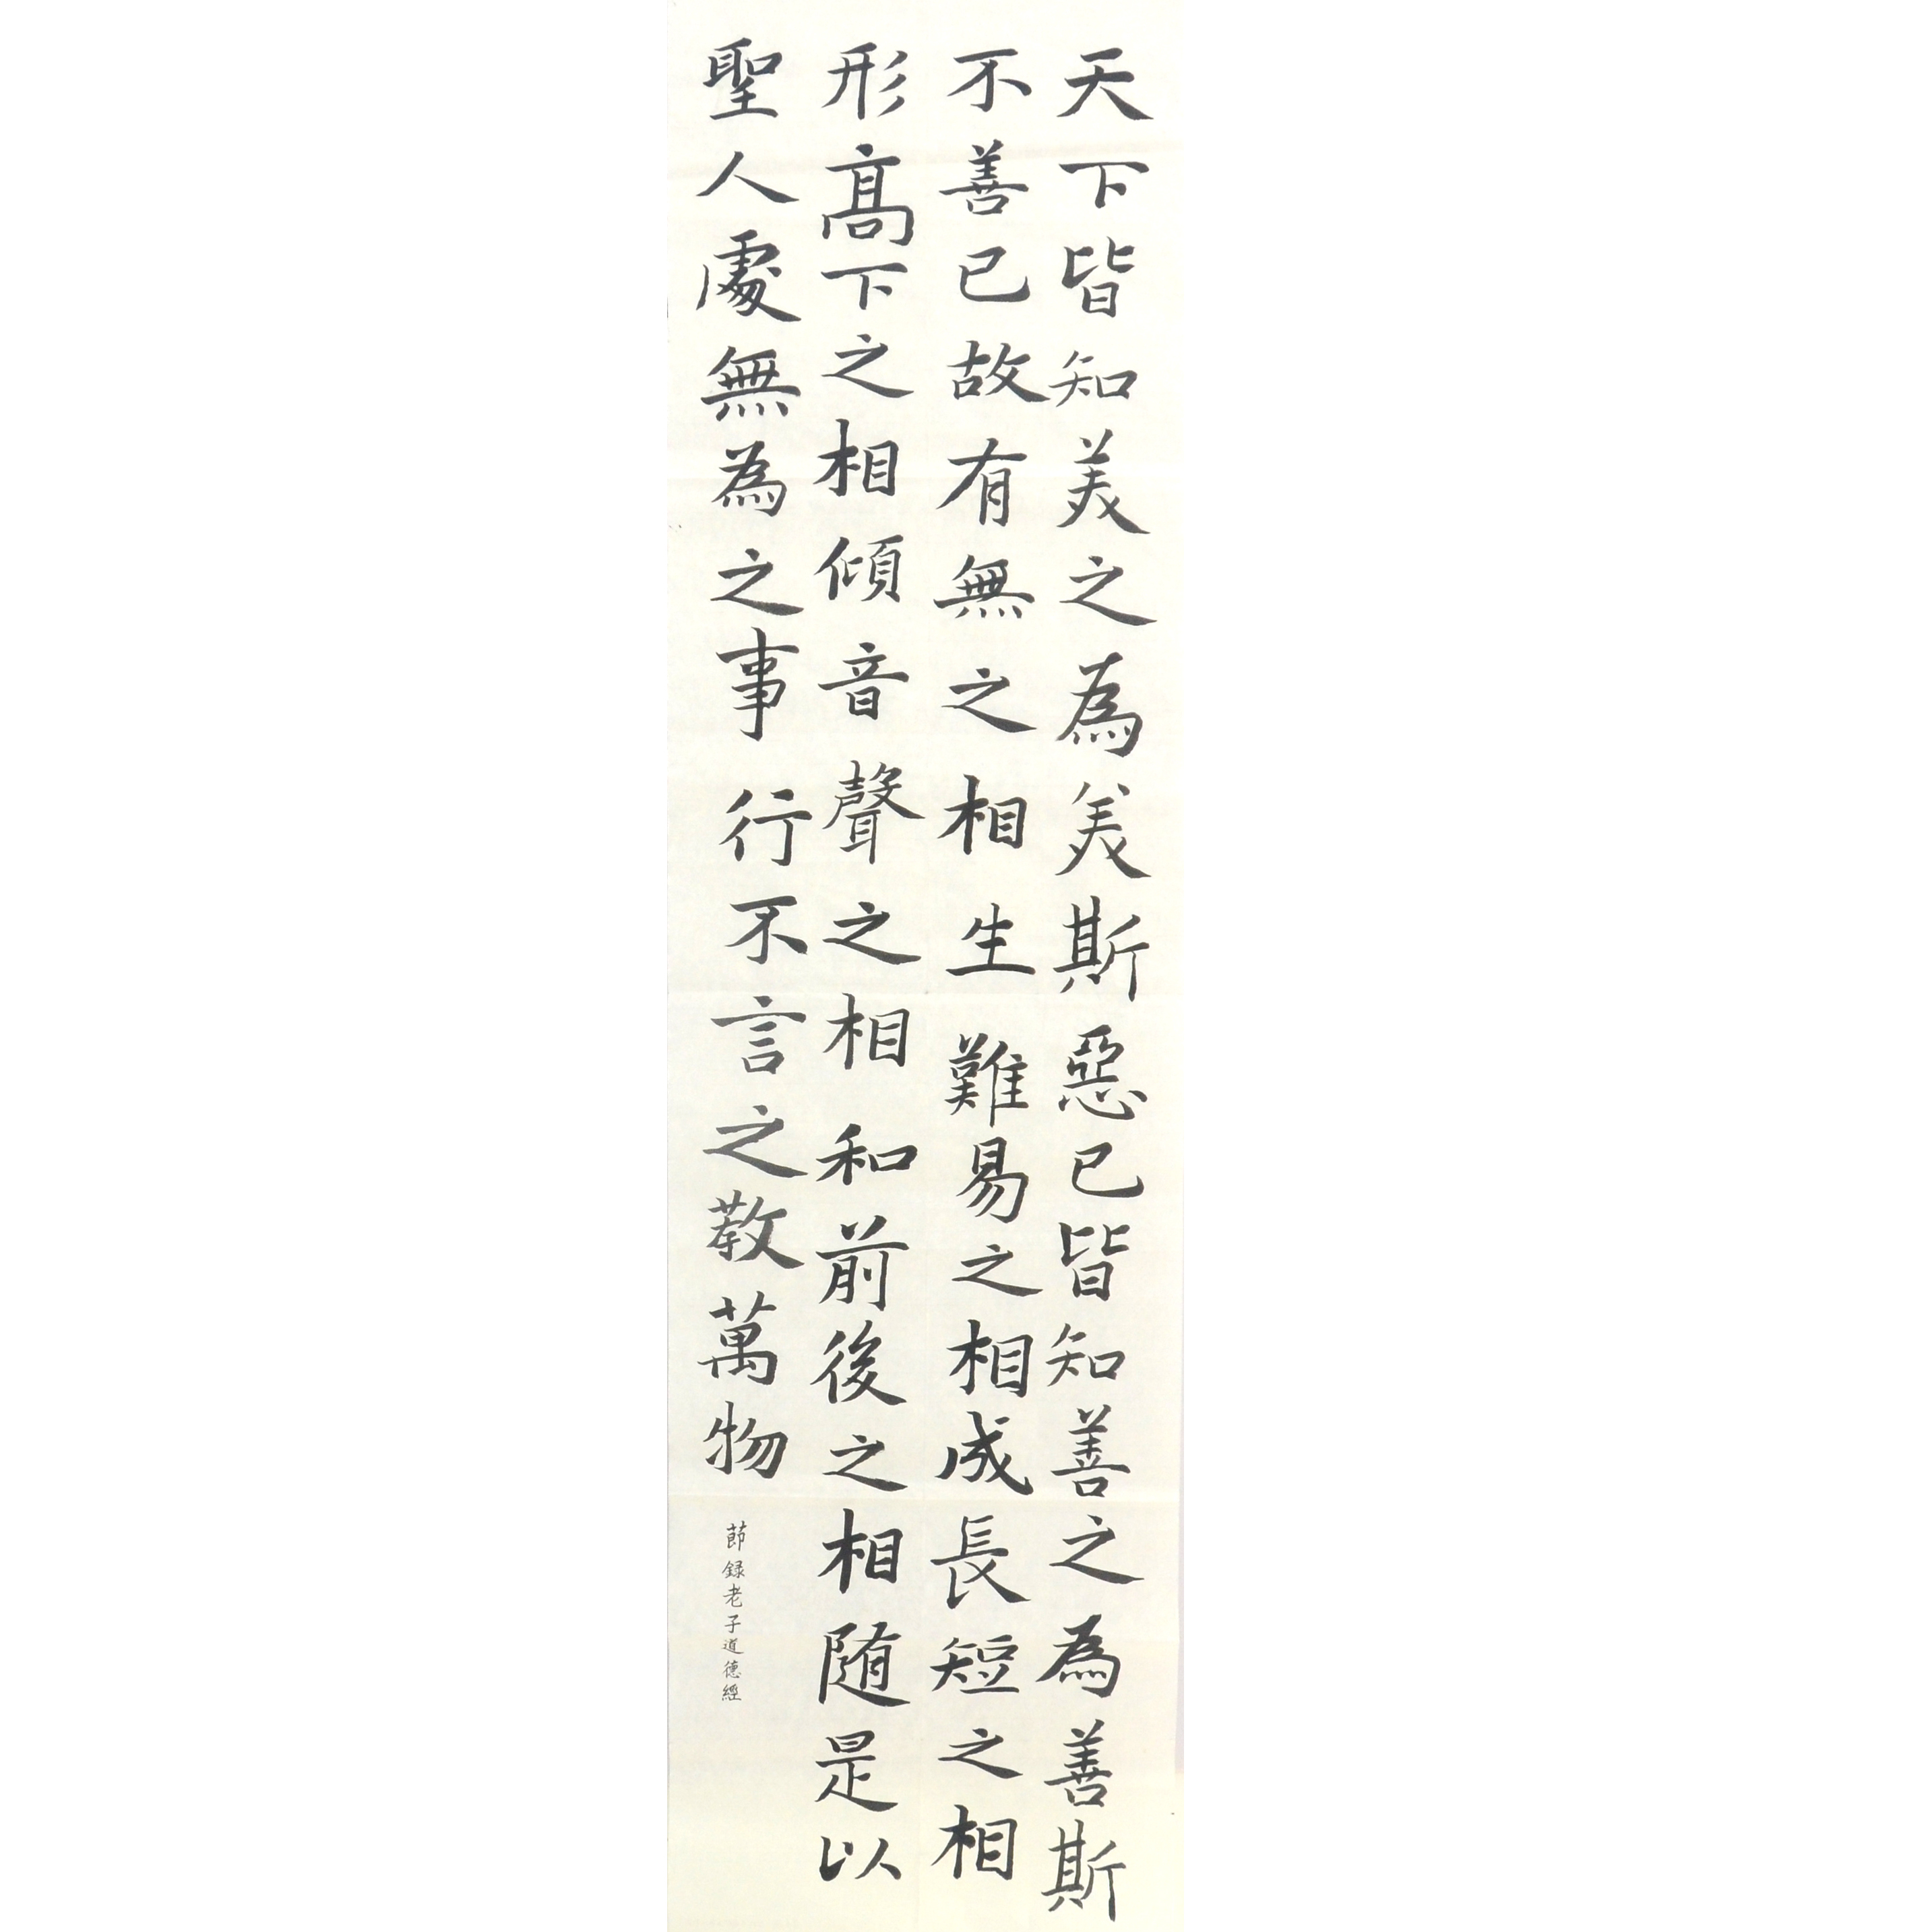 天下皆知美之為美斯惡已皆知善之為善斯
不善已故有無之相生難易之相成長短之相
形高下之相傾音聲之相和前後之相随是以
聖人處無為之事行不言之教萬物
節録老子道德經